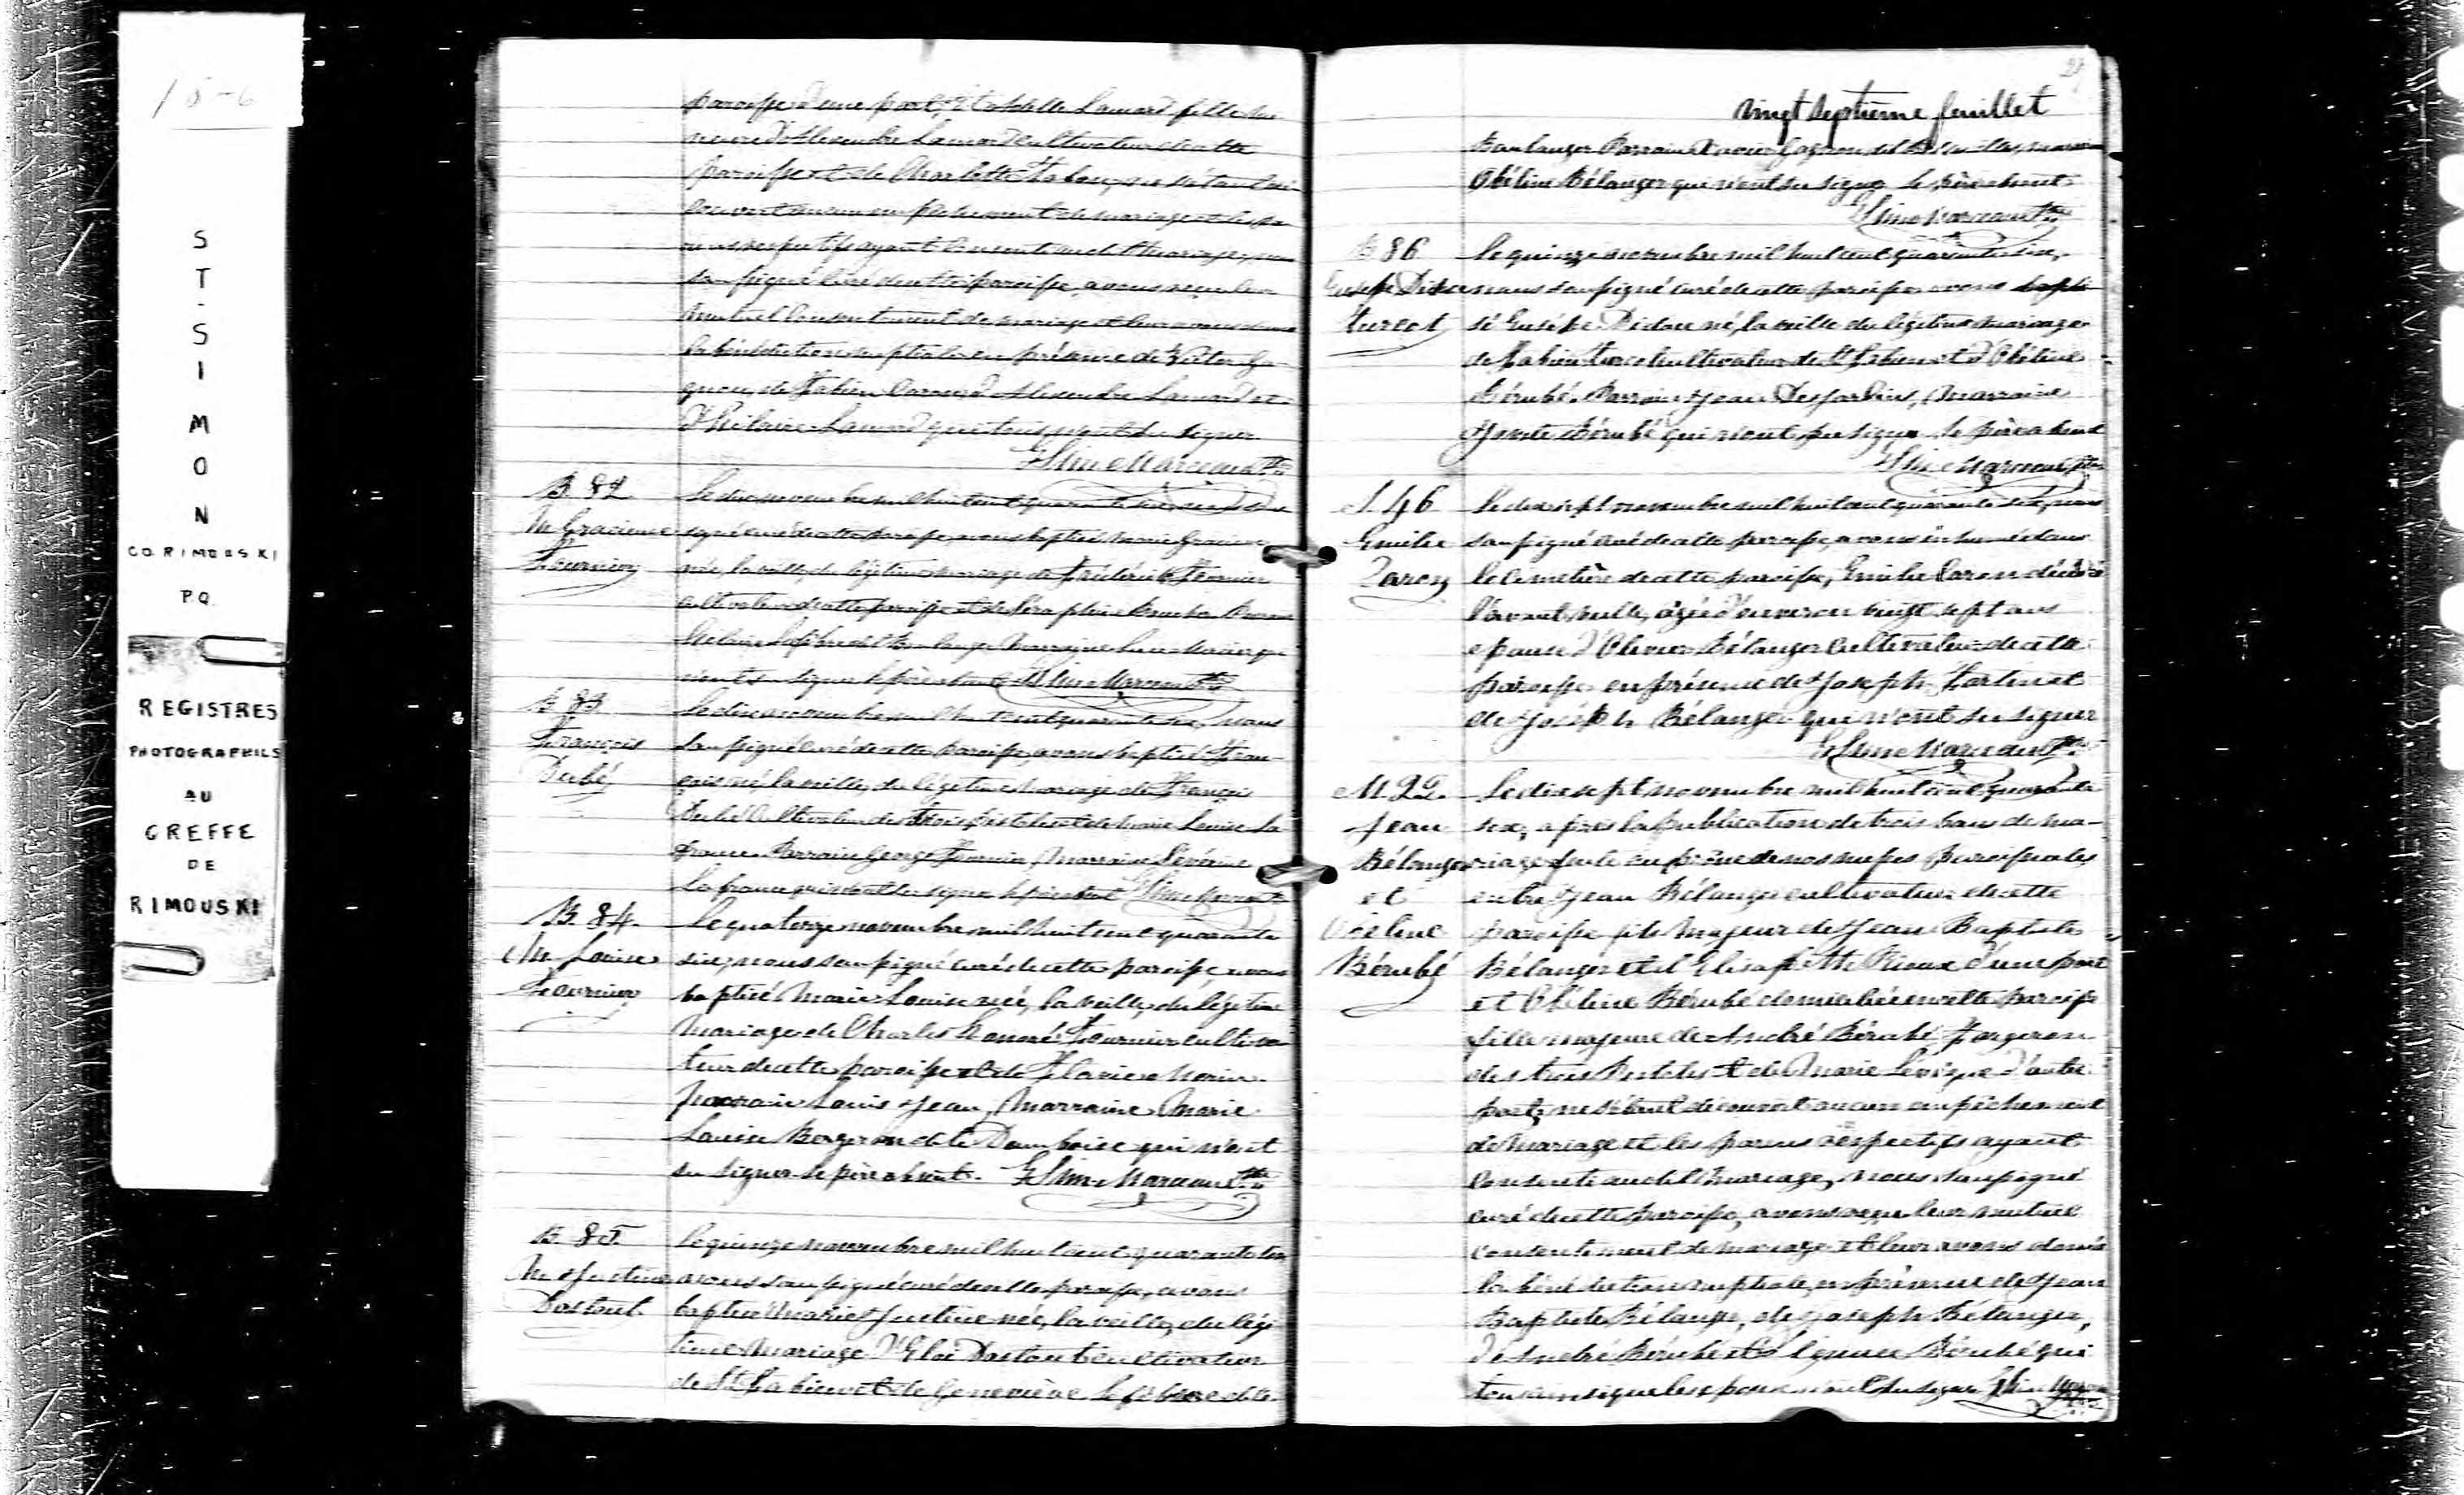 18-6
ST-SIMON
CO. RIMOUSKI
P.Q.
REGISTRES
PHOTOGRAPHIES
AU
GREFFE
DE
RIMOUSKI
paroisse d'une part, Et Adelle Lamard fille mi
neure d'Alexandre Lamard cultivateur de cette
paroisse et de Charlotte ne s'étant dé
couvert aucun empêchement de mariage et les pa
rens respectifs ayant consenti au dit mariage, nous
soussigné curé de cette paroisse, avons reçu leur
mutuel consentement de mariage et leur avons donné
la bénédiction nuptiale en présence de Victor Ga
gnon, de Fabien Caron, d'Alexandre Lamard et
d'Hilaire Lamard qui tous n'ont su signer
Marceau Ptre
B. 82.
M. Gracieuse
Fournier
Le dix novembre mil huit cent quarante six, nous sous
signé curé de cette paroisse, avons baptisé Marie Gracieuse
née, la veille, du légitime mariage de Frédérick Fournier
cultivateur de cette paroisse et de Séraphine
Lefebvre dit Boulanger Marraine qui
n'ont su signer le père absent Marceau Ptre
B. 83
François
Dubé
Le dix novembre mil huit cent quarante six, nous
soussigné curé de cette paroisse, avons baptisé Fran-
çois né la veille, du légitime mariage de François
Dubé Cultivateur des Trois Pistoles et de Marie Louise La
france. Parrain George Fournier, Marraine Séverine
Lafrance qui n'ont su signer le père absent Marceau Ptre
B. 84.
M. Louise
Fournier
Le quatorze novembre mil huit cent quarante
six, nous soussigné curé de cette paroisse, avons
baptisé Marie Louise née, la veille, du légitime
mariage de Charles Honoré Fournier cultiva
teur de cette paroisse et de Flavie Morin.
Parrain Louis Jean, Marraine Marie
Louise Bergeron dite Damboise qui n'ont
su signer le père absent. Marceau Ptre
B. 85.
M. Justine
Dastout
Le quinze novembre mil huit cent quarante six
nous soussigné curé de cette paroisse, avons
baptisé Marie Justine née, la veille, du légi
time mariage d'Eloi Dastout cultivateur
de St. Fabien et de Geneviève Lefebvre dite
27
Vingt septième feuillet
Boulanger Parrain Xavier Gagnon dit Belles-illes, marraine
Obéline Bélanger qui n'ont su signer le père absent
Marceau Ptre
B. 86
Eusèbe Didace
Turcot
Le quinze novembre mil huit cent quarante six,
nous soussigné curé de cette paroisse avons bapti
sé Eusèbe Didace né, la veille du légitime mariage
de Fabien Turcot cultivateur de St Fabien et d'Obéline
Bérubé. Parrain Jean Desjardins, Marraine
Bérubé qui n'ont su signer le père absent
Marceau Ptre
S. 46
Emilie
Caron
Le dix sept novembre mil huit cent quarante six, nous
soussigné curé de cette paroisse, avons inhumé dans
le cimetière de cette paroisse, Emilie Caron décédée
l'avant veille, âgée d'environ vingt sept ans
épouse d'Olivier Bélanger Cultivateur de cette
paroisse en présence de Joseph Fortin et
de Joseph Bélanger qui n'ont su signer
Marceau Ptre
M. 22.
Jean
Bélanger
et
Obéline
Bérubé
Le dix sept novembre mil huit cent quarante
six, après la publication de trois bans de ma-
riage faite au prône de nos messes paroissiales
entre Jean Bélanger cultivateur de cette
paroisse fils majeur de Jean Baptiste
Bélanger et d'Elisabeth Rioux d'une part
et Obéline Bérubé domiciliée en cette paroisse
fille majeure de André Bérubé Forgeron
des trois Pistoles et de Marie Lévêque d'autre
part, ne s'étant découvert aucun empêchement
de mariage et les parens respectifs ayant
consenti au dit mariage, nous soussigné
curé de cette paroisse, avons reçu leur mutuel
consentement de mariage et leur avons donné
la bénédiction nuptiale, en présence de Jean
Baptiste Bélanger, de Joseph Bélanger,
d'André Bérubé et d'Ignace Bérubé qui
tous ainsi que les époux n'ont su signer